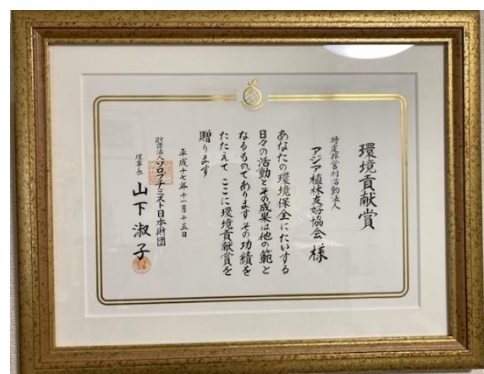 環境貢献賞
特定非営利活動法人
アジア植林友好協会 様
あなたの環境保全にたいする
日々の活動とその成果は他の範と
なるものであります その功績を
たたえて ここに環境貢献賞を
贈ります
平成十七年十一月十五日
財団法人ソロプチミスト日本財団
理事長 山下淑子